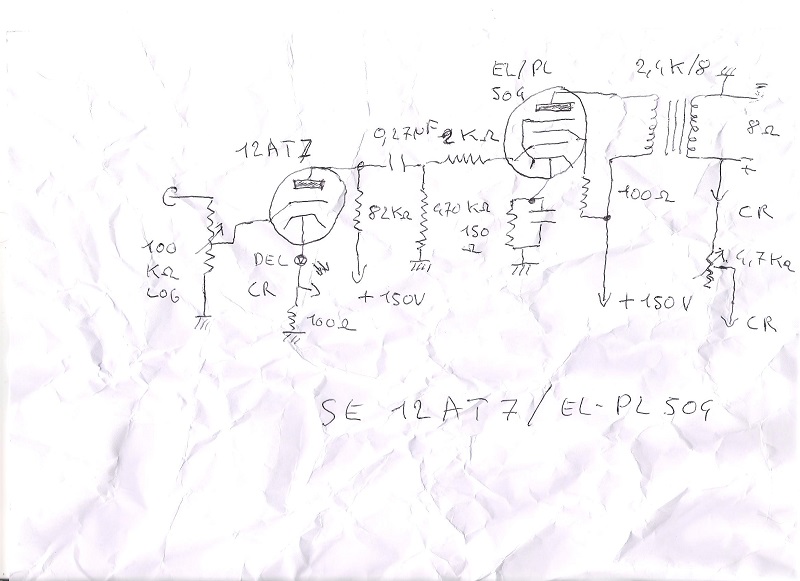 EL/PL
509
2,4K/8
8Ω
12AT7
0,27µF
2KΩ
100
KΩ
LOG
82KΩ
470 KΩ
150
Ω
100Ω
CR
4,7KΩ
DEL
CR
+150V
100Ω
+150V
CR
SE 12AT7/EL-PL509